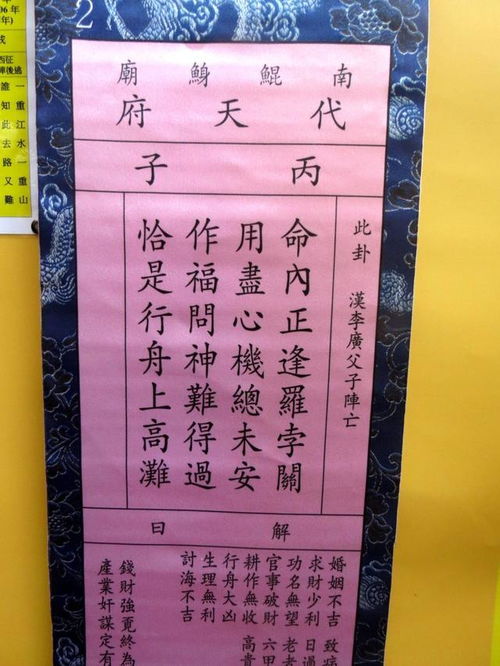 2
南鯤鯓廟
代天府
丙子
此卦 漢李廣父子陣亡
命內正逢羅孛關
用盡心機總未安
作福問神難得過
恰是行舟上高灘
解曰
婚姻不吉 致病
求財少利 日
功名無望 老老
官事破財 六甲
耕作無收 高貴
行舟大凶
生理無利
討海不吉
錢財強覓終為
產業奸謀定有
年
06年
年)
戌
西征
陣後逃
一重江水一重山
誰知此去路又難